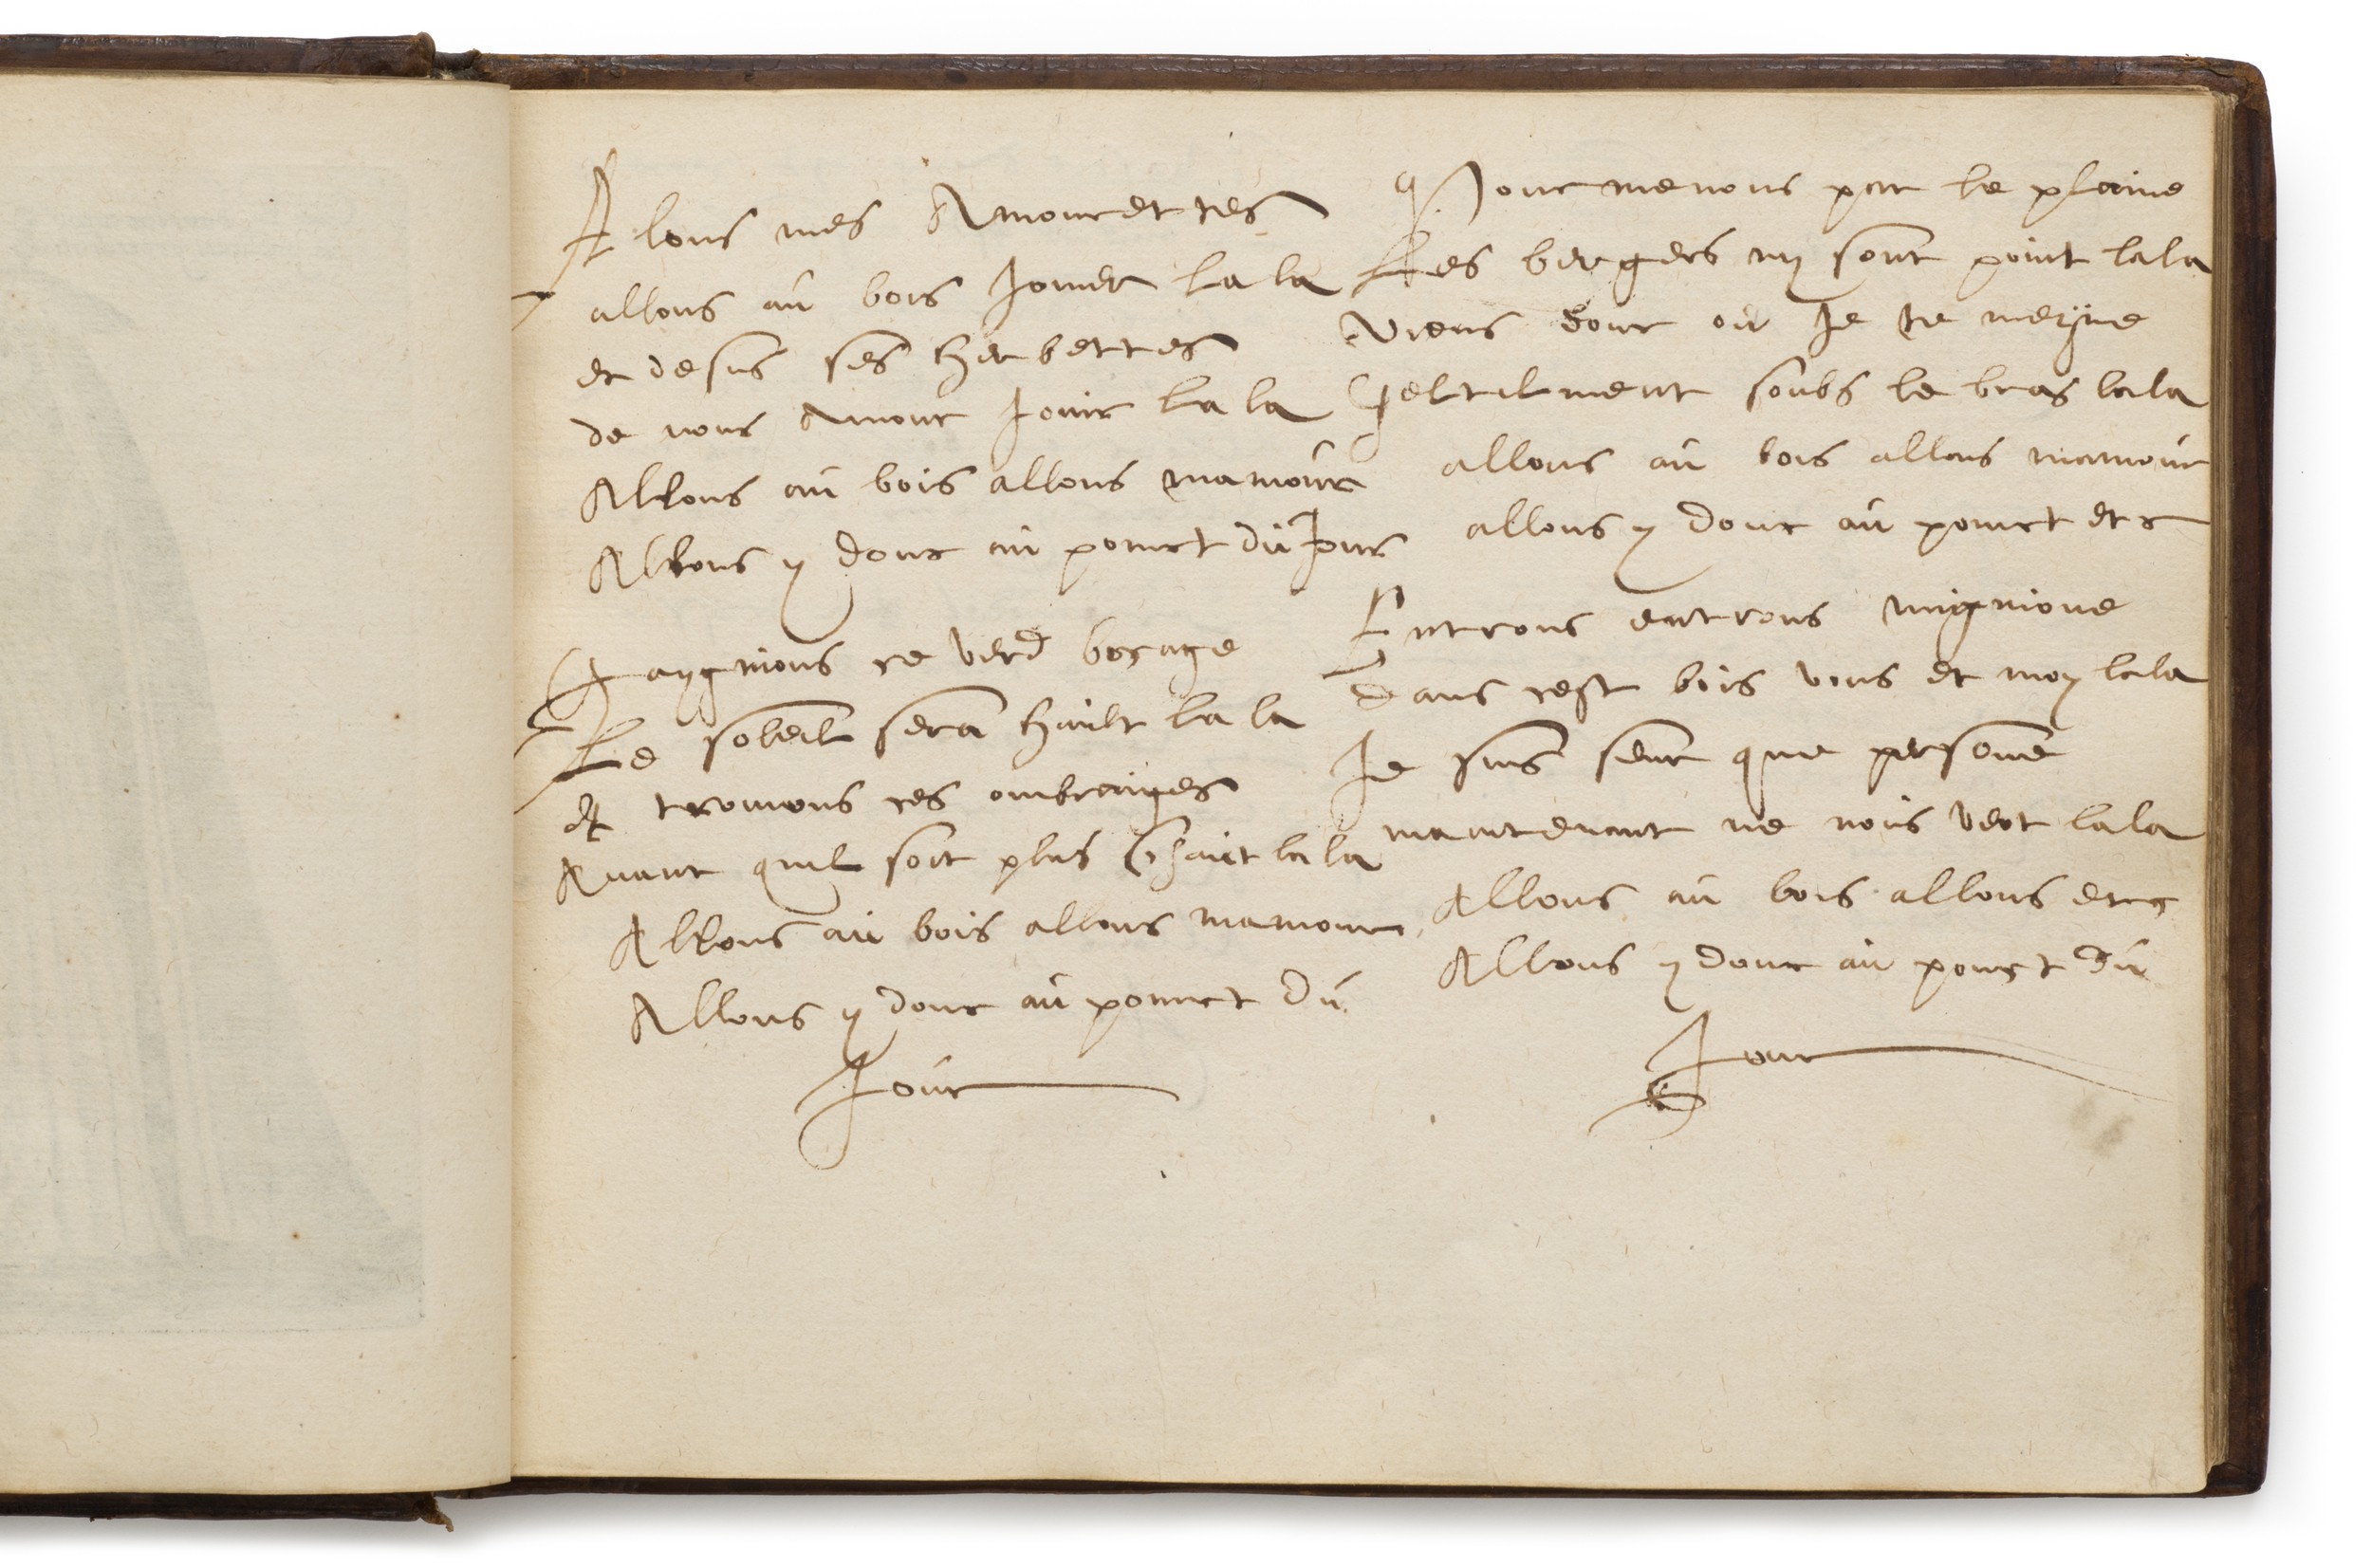 Alons mes Amourettes
allons au bois Jouer la la
et desus ses herbettes
de nous Amour Jouir la la
Allons au bois allons mamour
Allons y donc au poinct du Jour
Gaygnions ce verd bocage
Le soleil sera hault la la
et trouvons ces ombraiges
Avant quil soit plus Chaut la la
Allons au bois allons mamour
Allons y donc au poinct du
Jour
Pourmenons par le plaine
Les bergers ny sont point lala
Viens donc ou Je te meyne
Geltilment soubs le bras lala
allons au bois allons mamour
allons y donc au poinct etc
Entrons entrons mignione
Dans cest bois vous et moy lala
Je suis seur que persone
maintenant ne nous veot lala
Allons au bois allons etc
Allons y donc au ponct du
Jour